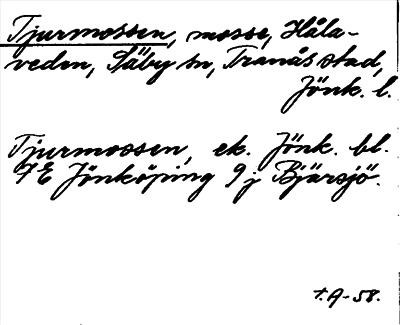 Tjurmossen, mosse, Håla-
veden, Säby sn, Tranås stad,
Jönk. l.
Tjurmossen, ek. Jönk. bl.
7E Jönköping 9j Bjärsjö.
t. A-58.